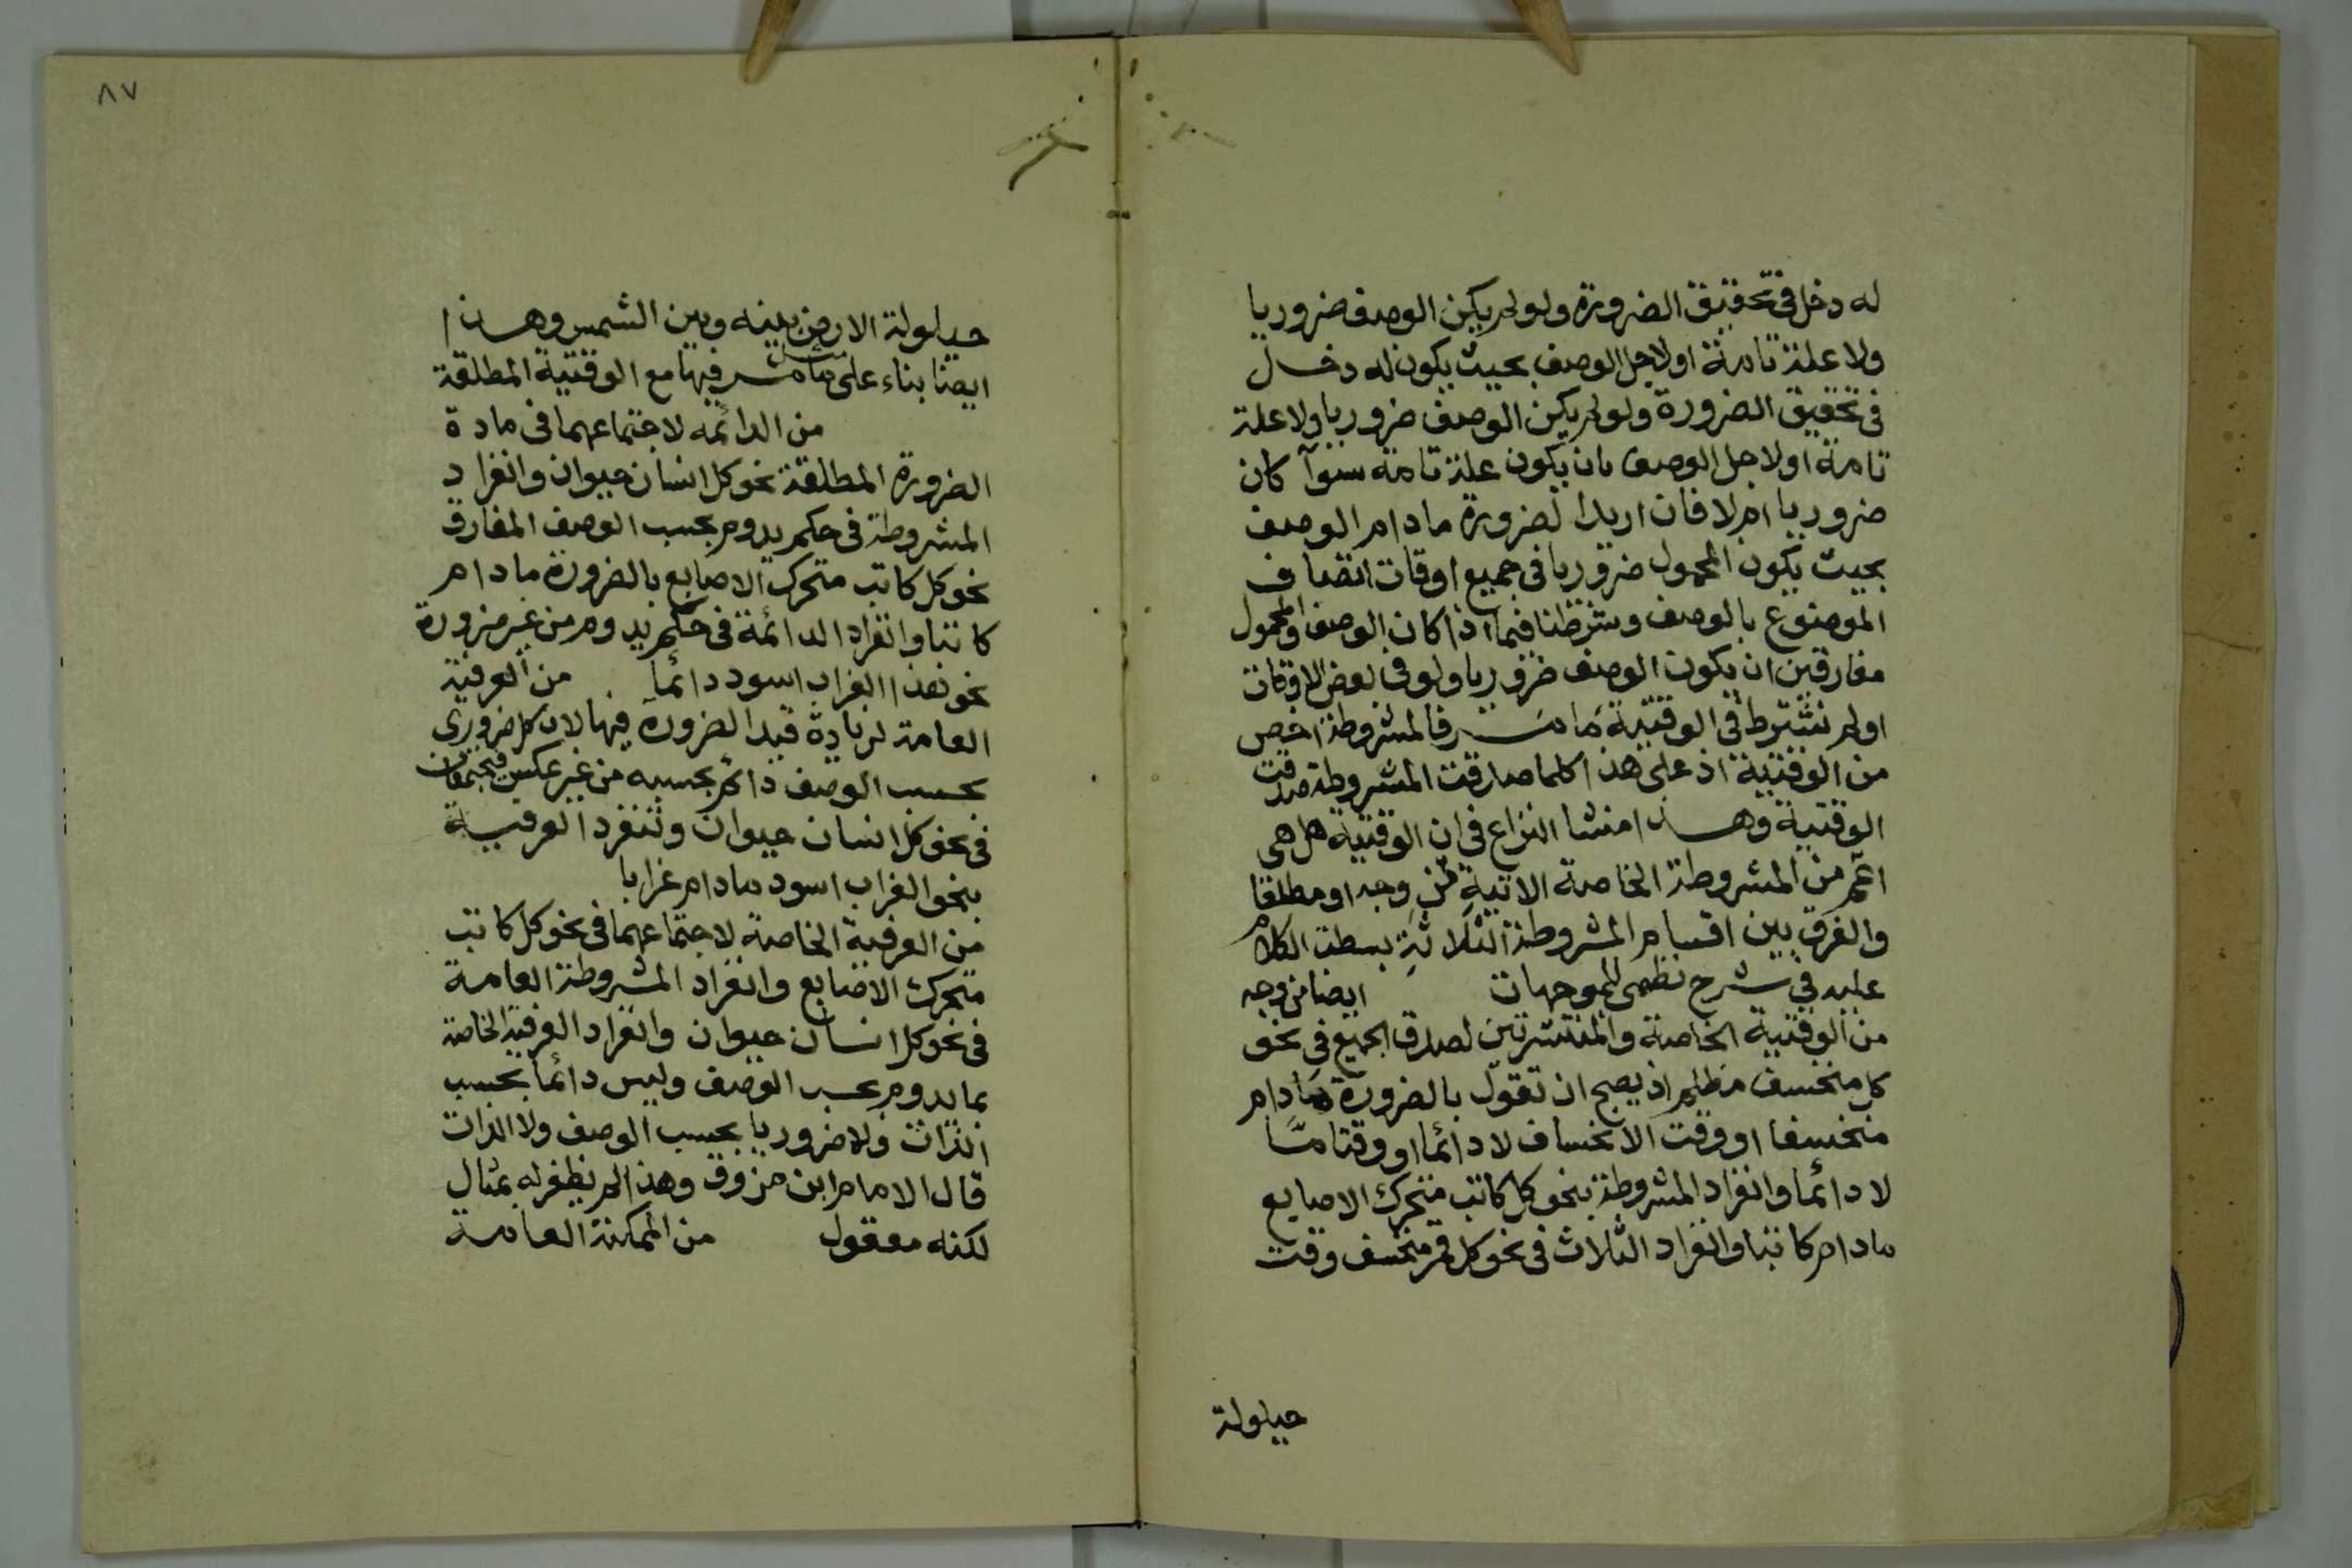 له دخل في تحقيق الضرورة ولو لم يكن الوصف ضروريا
ولا علة تامة او لاجل الوصف بحيث يكون له دخل
في تحقيق الضرورة ولو لم يكن الوصف ضروريا ولا علة
تامة او لاجل الوصف بان يكون علة تامة سوآ كان
ضروريا ام لا فان اريد الضرورة مادام الوصف
بحيث يكون المحمول ضروريا في جميع اوقات اتصاف
الموضوع بالوصف وشرطنا فيما اذا كان الوصف والمحمول
مفارقين ان يكون الوصف ضروريا ولو في بعض الاوقات
او لم نشترط في الوقتية ما مر فالمشروطة اخص
من الوقتية اذ على هذا كلما صدقت المشروطة صدقت
الوقتية وهذا منشا النزاع في ان الوقتية هل هي
اعم من المشروطة الخاصة الاتية من وجه او مطلقا
والفرق بين اقسام المشروطة الثلاثة بسطت الكلام
عليه في شرح نظمي للموجهات ايضا من وجه
من الوقتية الخاصة والمنتشرتين لصدق الجميع في نحو
كل منخسف مظلم اذ يصح ان تقول بالضرورة مادام
منخسفا او وقت الانخساف لا دائما او وقتا مّا
لا دائما وانفراد المشروطة بنحو كل كاتب متحرك الاصابع
مادام كاتبا وانفراد الثلاث في نحو كل قمر منخسف وقت
حيلولة
٨٧
حيلولة الارض بينه وبين الشمس وهذا
ايضا بناء على ما مر فيها مع الوقتية المطلقة
من الدائمه لاجتماعهما في مادة
الضرورة المطلقة نحو كل انسان حيوان وانفراد
المشروطة في حكم يدوم بحسب الوصف المفارق
نحو كل كاتب متحرك الاصابع بالضرورة مادام
كاتبا وانفراد الدائمة في حكم يدوم من غير ضرورة
نحو هذا الغراب اسود دائما من العرفية
العامة لزيادة قيد الضرورة فيها لان كل ضروري
بحسب الوصف دائم بحسبه من غير عكس فيجتمعان
في نحو كل انسان حيوان وتنفرد العرفية
بنحو الغراب اسود مادام غرابا
من العرفية الخاصة لاجتماعهما في نحو كل كاتب
متحرك الاصابع وانفراد المشروطة العامة
في نحو كل انسان حيوان وانفراد العرفية الخاصة
بما يدوم بحسب الوصف وليس دائما بحسب
الذات ولا ضروريا بحسب الوصف ولا الذات
قال الامام ابن مرزوق وهذا لم نظفر له بمثال
لكنه معقول من الممكنة العامة